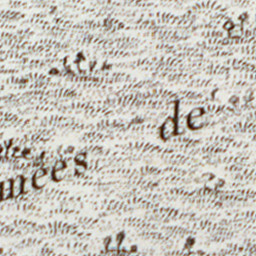 de
mées